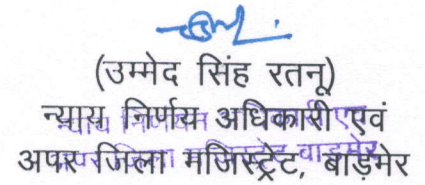 (उम्मेद सिंह रतनू)
न्याय निर्णय अधिकारी एवं
अपर जिला मजिस्ट्रेट, बाड़मेर